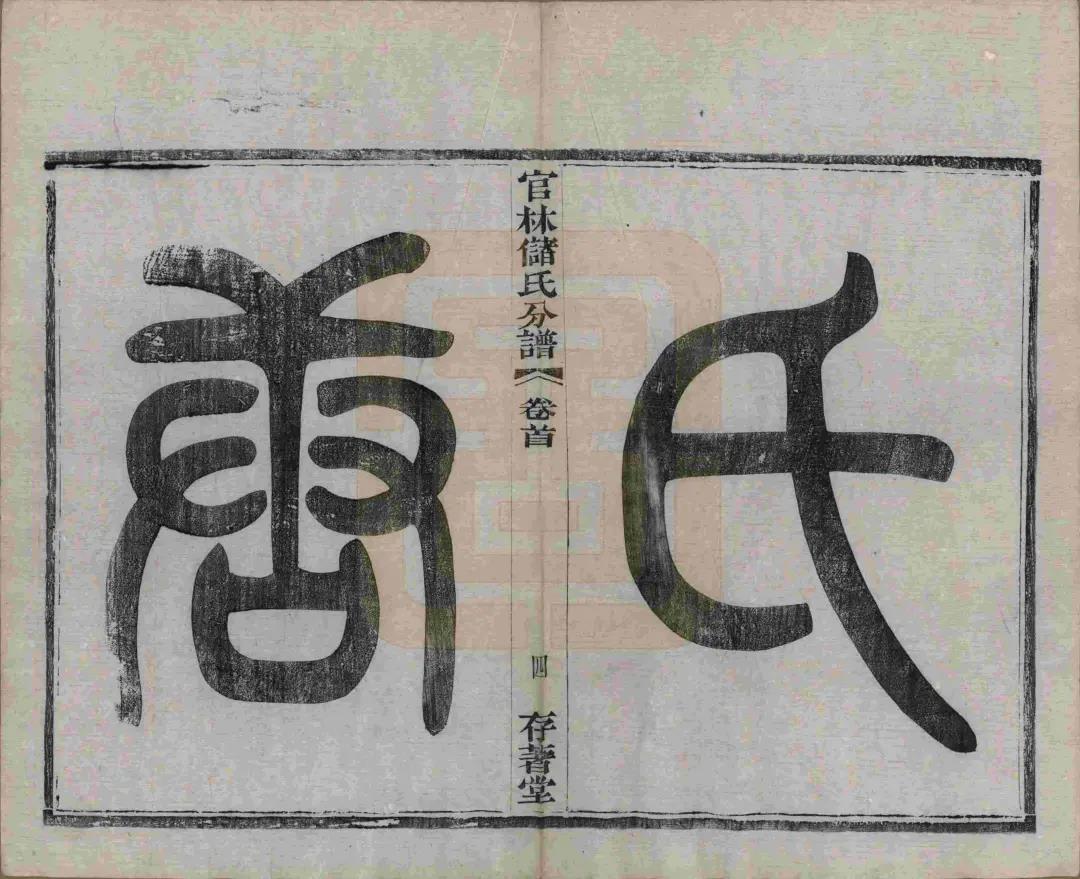 氏
官林儲氏分譜 卷首 四 存著堂
唐